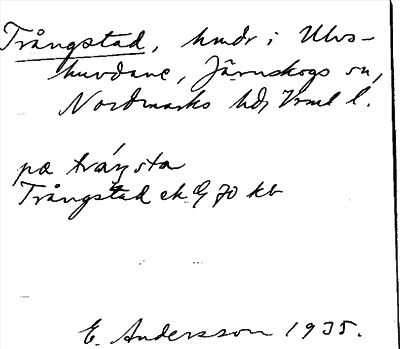 Trångstad, hmdr i Ulvs-
huvdane, Järnskogs sn,
Nordmarks hd, Vrml l.
på trångsta
Trångstad ek 9 70 kb
E. Andersson 1935.